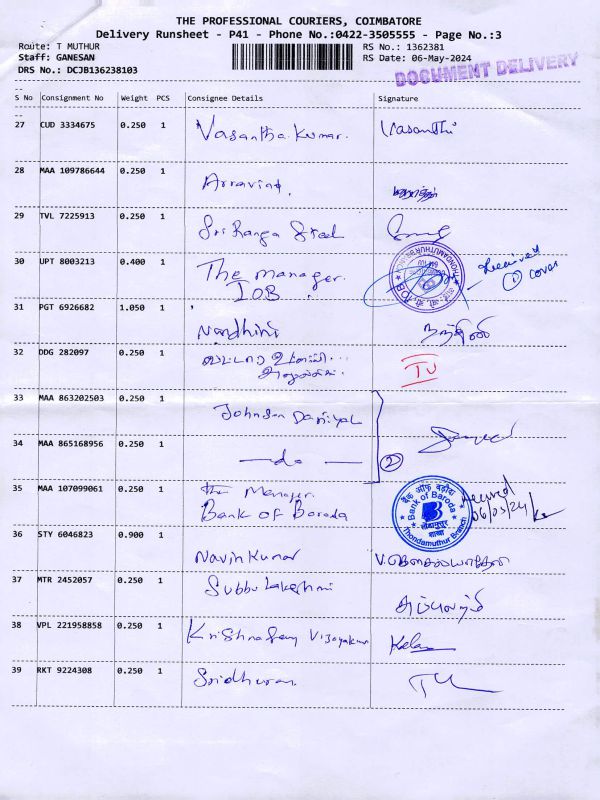 THE PROFESSIONAL COURIERS, COIMBATORE
Delivery Runsheet - P41 - Phone No.:0422-3505555 - Page No.:3
Route: T MUTHUR
RS No.: 1362381
Staff: GANESAN
RS Date: 06-May-2024
DRS No.: DCJB136238103
DOCUMENT DELIVERY
S No Consignment No Weight PCS Consignee Details Signature
27 CUD 3334675 0.250 1 Vasantha Kumar. Vasanthi
28 MAA 109786644 0.250 1 Arravind.
29 TVL 7225913 0.250 1 Sri Ranga Steel
30 UPT 8003213 0.400 1 The manager. Received
IOB ① cover
31 PGT 6926682 1.050 1 Nandhini நந்தினி
32 DDG 282097 0.250 1 வட்டார
TU
33 MAA 863202503 0.250 1 Johnson Daniyal
34 MAA 865168956 0.250 1 —do— ②
35 MAA 107099061 0.250 1 The Manager. Received
Bank of Baroda 06/05/24
बैंक ऑफ़ बड़ौदा
Bank of Baroda
शाखा
Thondamuthur Branch
36 STY 6046823 0.900 1 Navin Kumar
37 MTR 2452057 0.250 1 Subbu Lakshmi
38 VPL 221958858 0.250 1 Krishnasamy Vijayakumar Kala
39 RKT 9224308 0.250 1 Sridharan